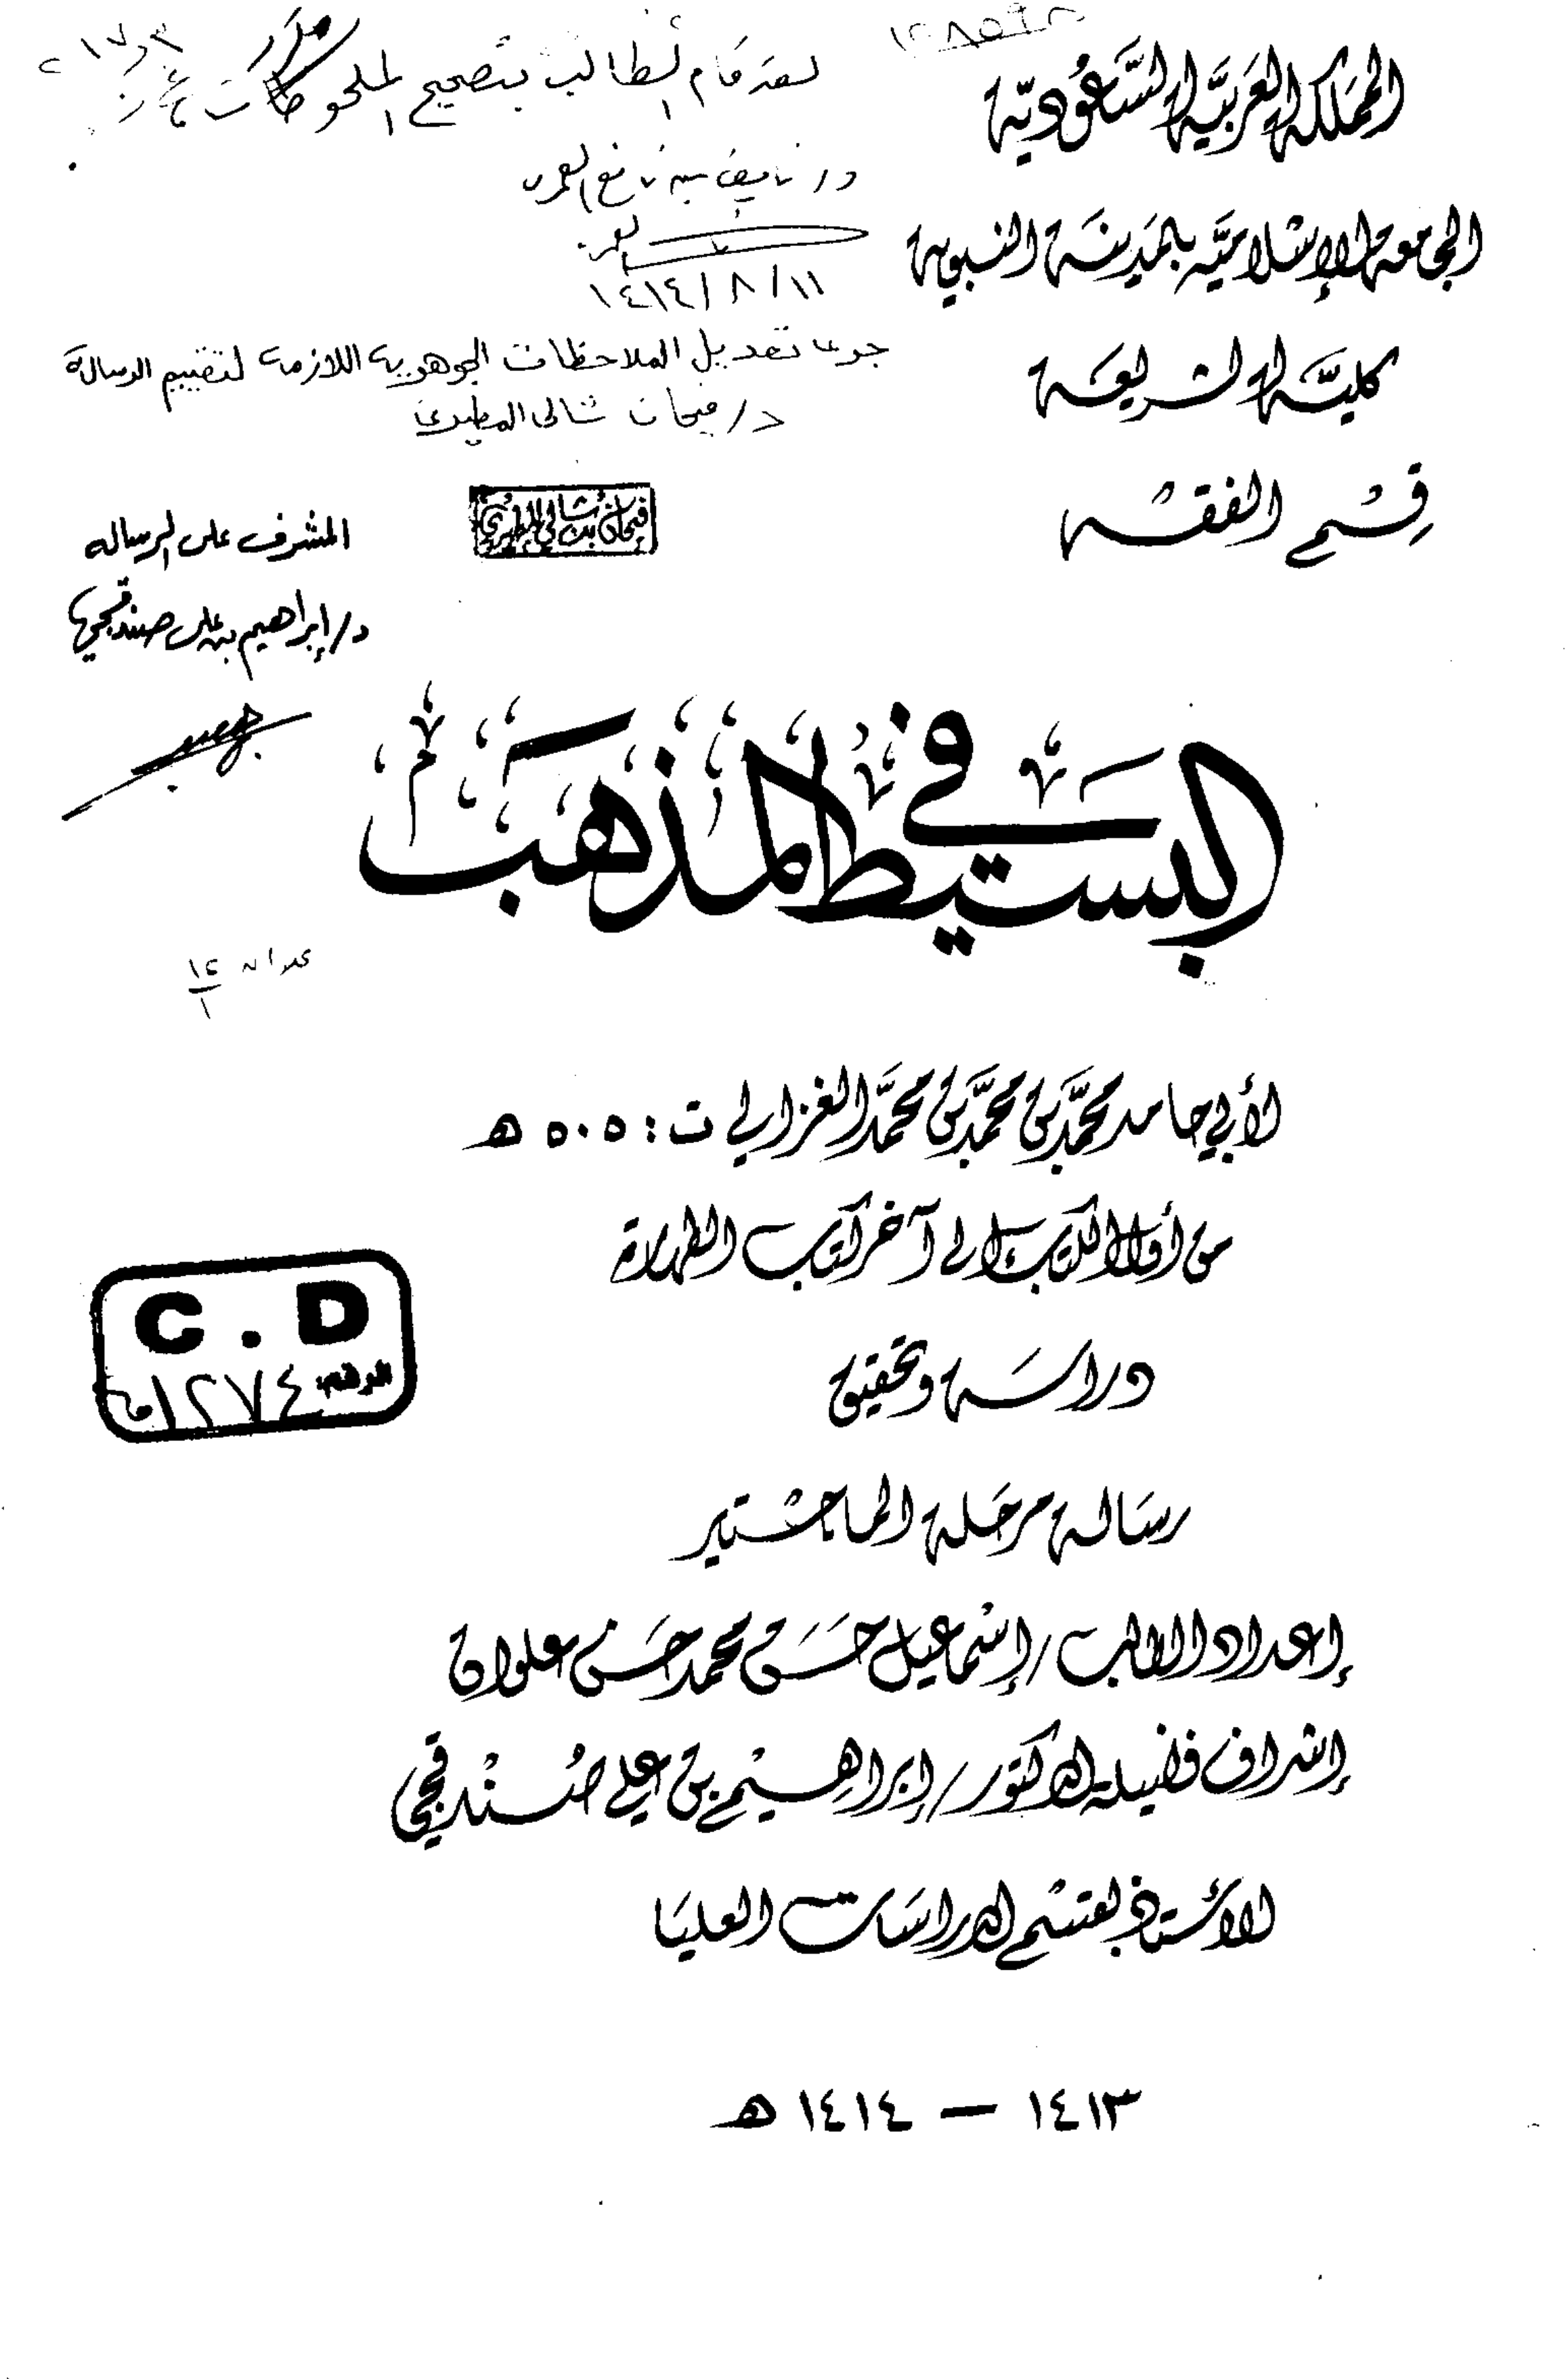 المملكة العربية السعودية
الجامعة الإسلامية بالمدينة النبوية
كلية الشريعة
قسم الفقه
لقد قام الطالب بتصحيح الملحوظات
د/ نايف بن نافع العمري
١٤١٤/٨/١١
جرى تعديل الملاحظات الجوهرية اللازمة لتقييم الرسالة
د/ فيحان شالي المطيري
فيحان بن شالي المطيري
المشرف على الرسالة
د/ إبراهيم بن علي صندقجي
البسيط في المذهب
لأبي حامد محمد بن محمد بن محمد الغزالي ت: ٥٠٥ هـ
من أول الكتاب إلى آخر كتاب الطهارة
C . D
الرقم: ١٢٧٤
دراسة وتحقيق
رسالة مرحلة الماجستير
إعداد الطالب / إسماعيل حسن محمد حسن علوان
إشراف فضيلة الدكتور / إبراهيم بن علي صندقجي
الأستاذ بقسم الدراسات العليا
١٤١٣ — ١٤١٤ هـ